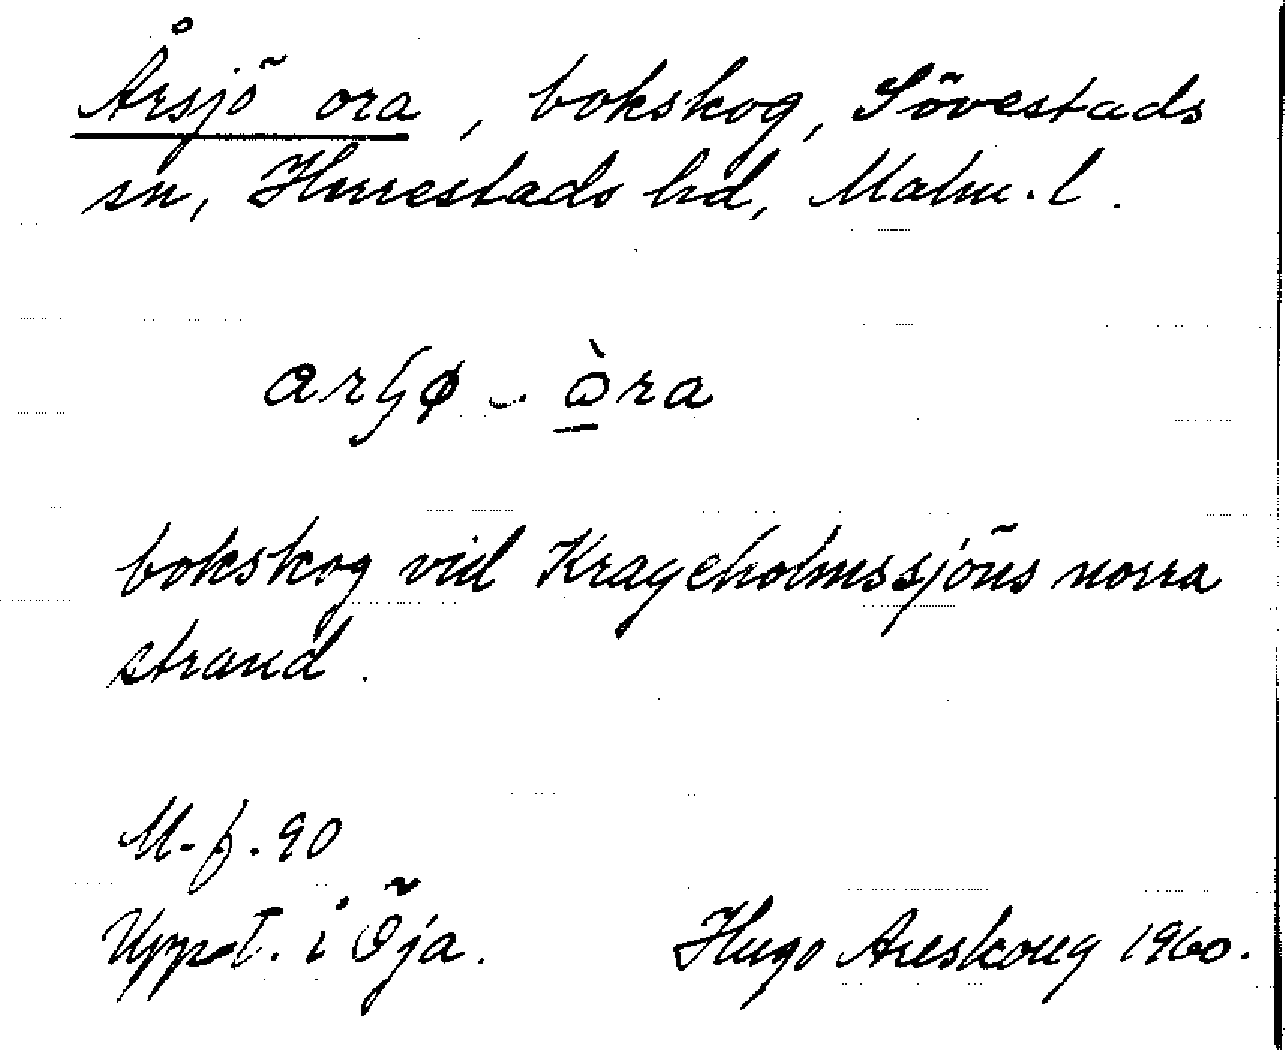 Årsjö ora, bokskog, Sövestads
sn, Herrestads hd, Malm. l.
bokskog vid Krageholmssjöns norra
strand.
M. f. 90
Uppt. i Öja. Hugo Areskoug 1960.